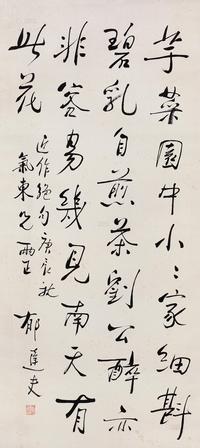 芋菜園中小〻家細斟
碧乳自煎茶劉公醉亦
非容易幾見南天有
此花
近作絕句庚辰秋
氣東兄兩正
郁達夫